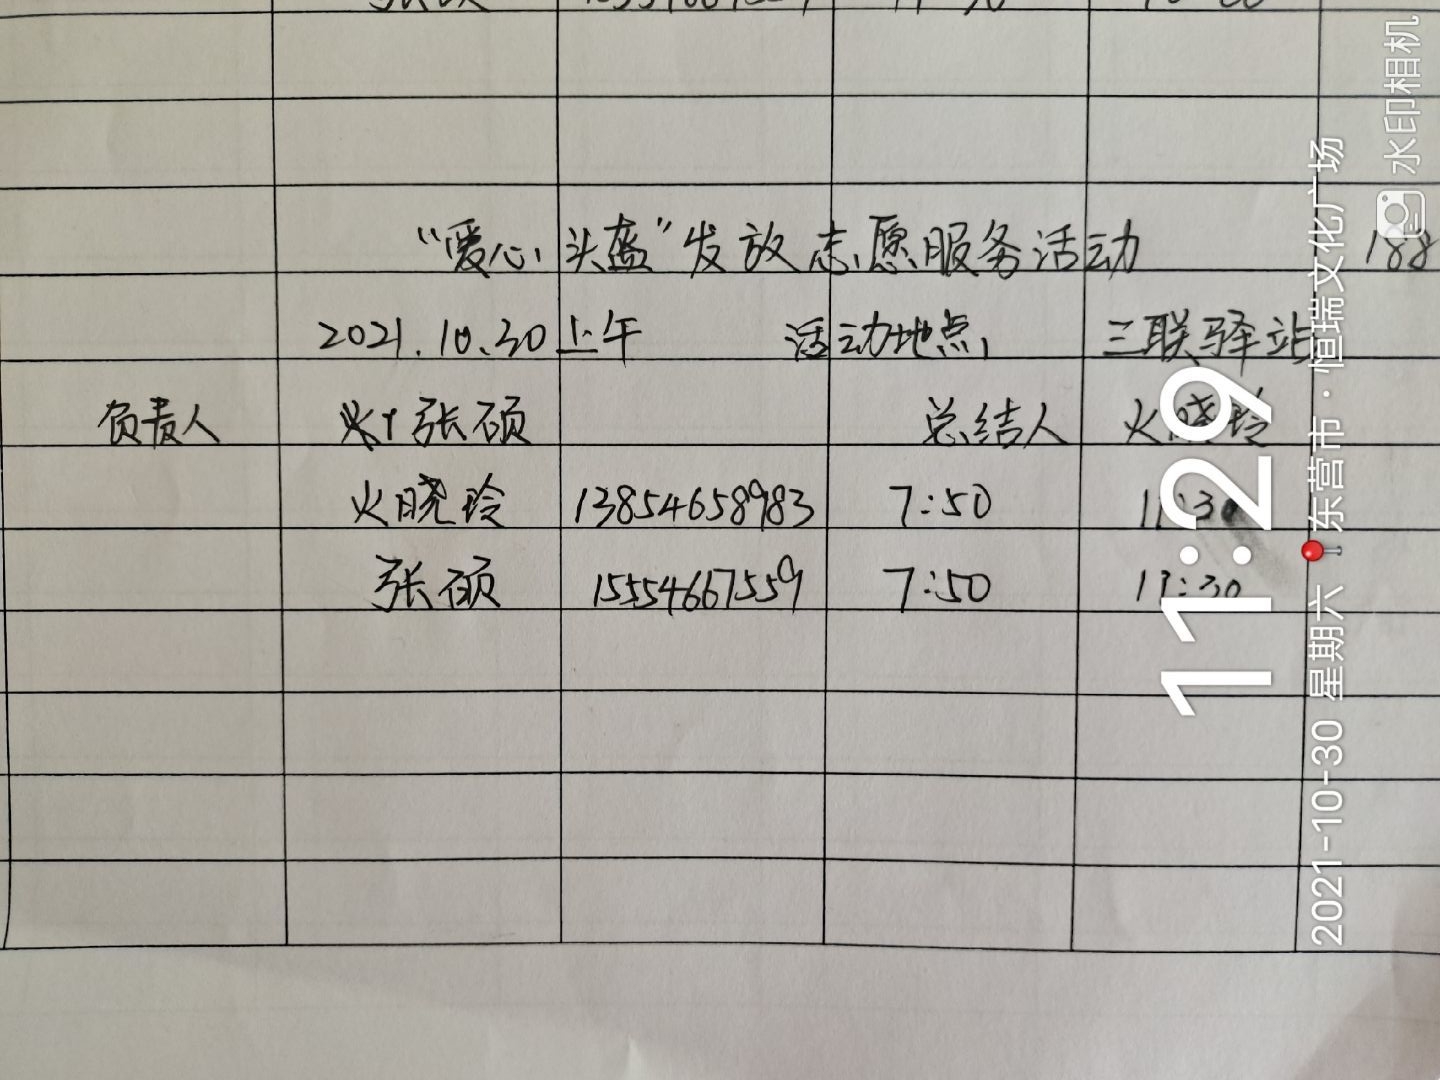 "爱心头盔"发放志愿服务活动 188
2021.10.30上午 活动地点 三联驿站
负责人 张硕 总结人 火晓玲
火晓玲 13854658983 7:50 11:30
张硕 15554667559 7:50 11:30
11:29
2021-10-30 星期六 东营市·恒瑞文化广场
水印相机